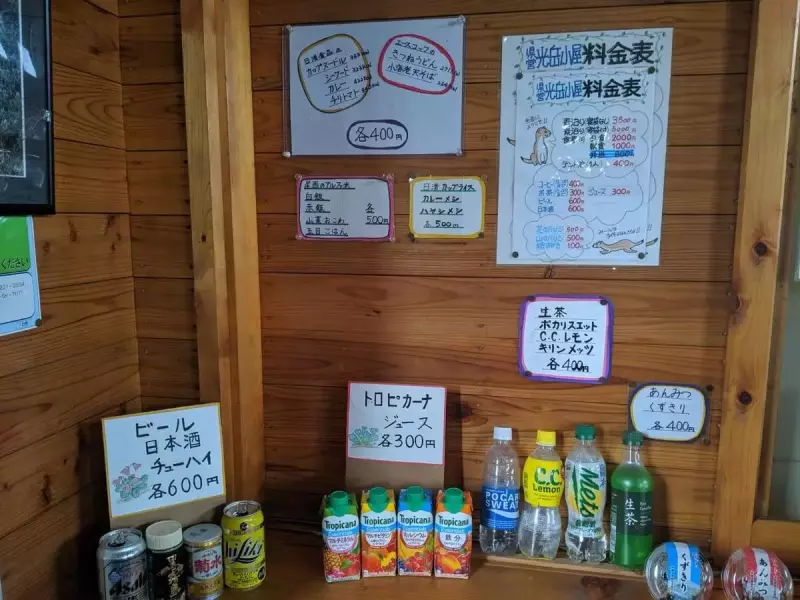 日清食品の
カップヌードル
シーフード
カレー
チリトマト
エースコックの
きつねうどん
小海老天そば
各400円
県営光岳小屋料金表
県営光岳小屋料金表
3500円
5000円
2000円
軟食 1000円
弁当 800円
テント 1人 400円
コーヒー 400円
お茶 300円 ジュース 300円
ビール 600円
日本酒 600円
500円
500円
100円
尾西のアルファ米
白飯
赤飯 各
山菜おこわ 500円
五目ごはん
日清カップライス
カレーメシ
ハヤシメシ
各500円
ください
生茶
ポカリスエット
C.C.レモン
キリンメッツ
各400円
あんみつ
くずきり
各400円
トロピカーナ
ジュース
各300円
ビール
日本酒
チューハイ
各600円
Asahi
菊水
Tropicana
Tropicana
Tropicana
Tropicana
マルチビタミン
カルシウム
鉄分
POCARI
SWEAT
C.C.
Lemon
Mets
生茶
くずきり
あんみつ